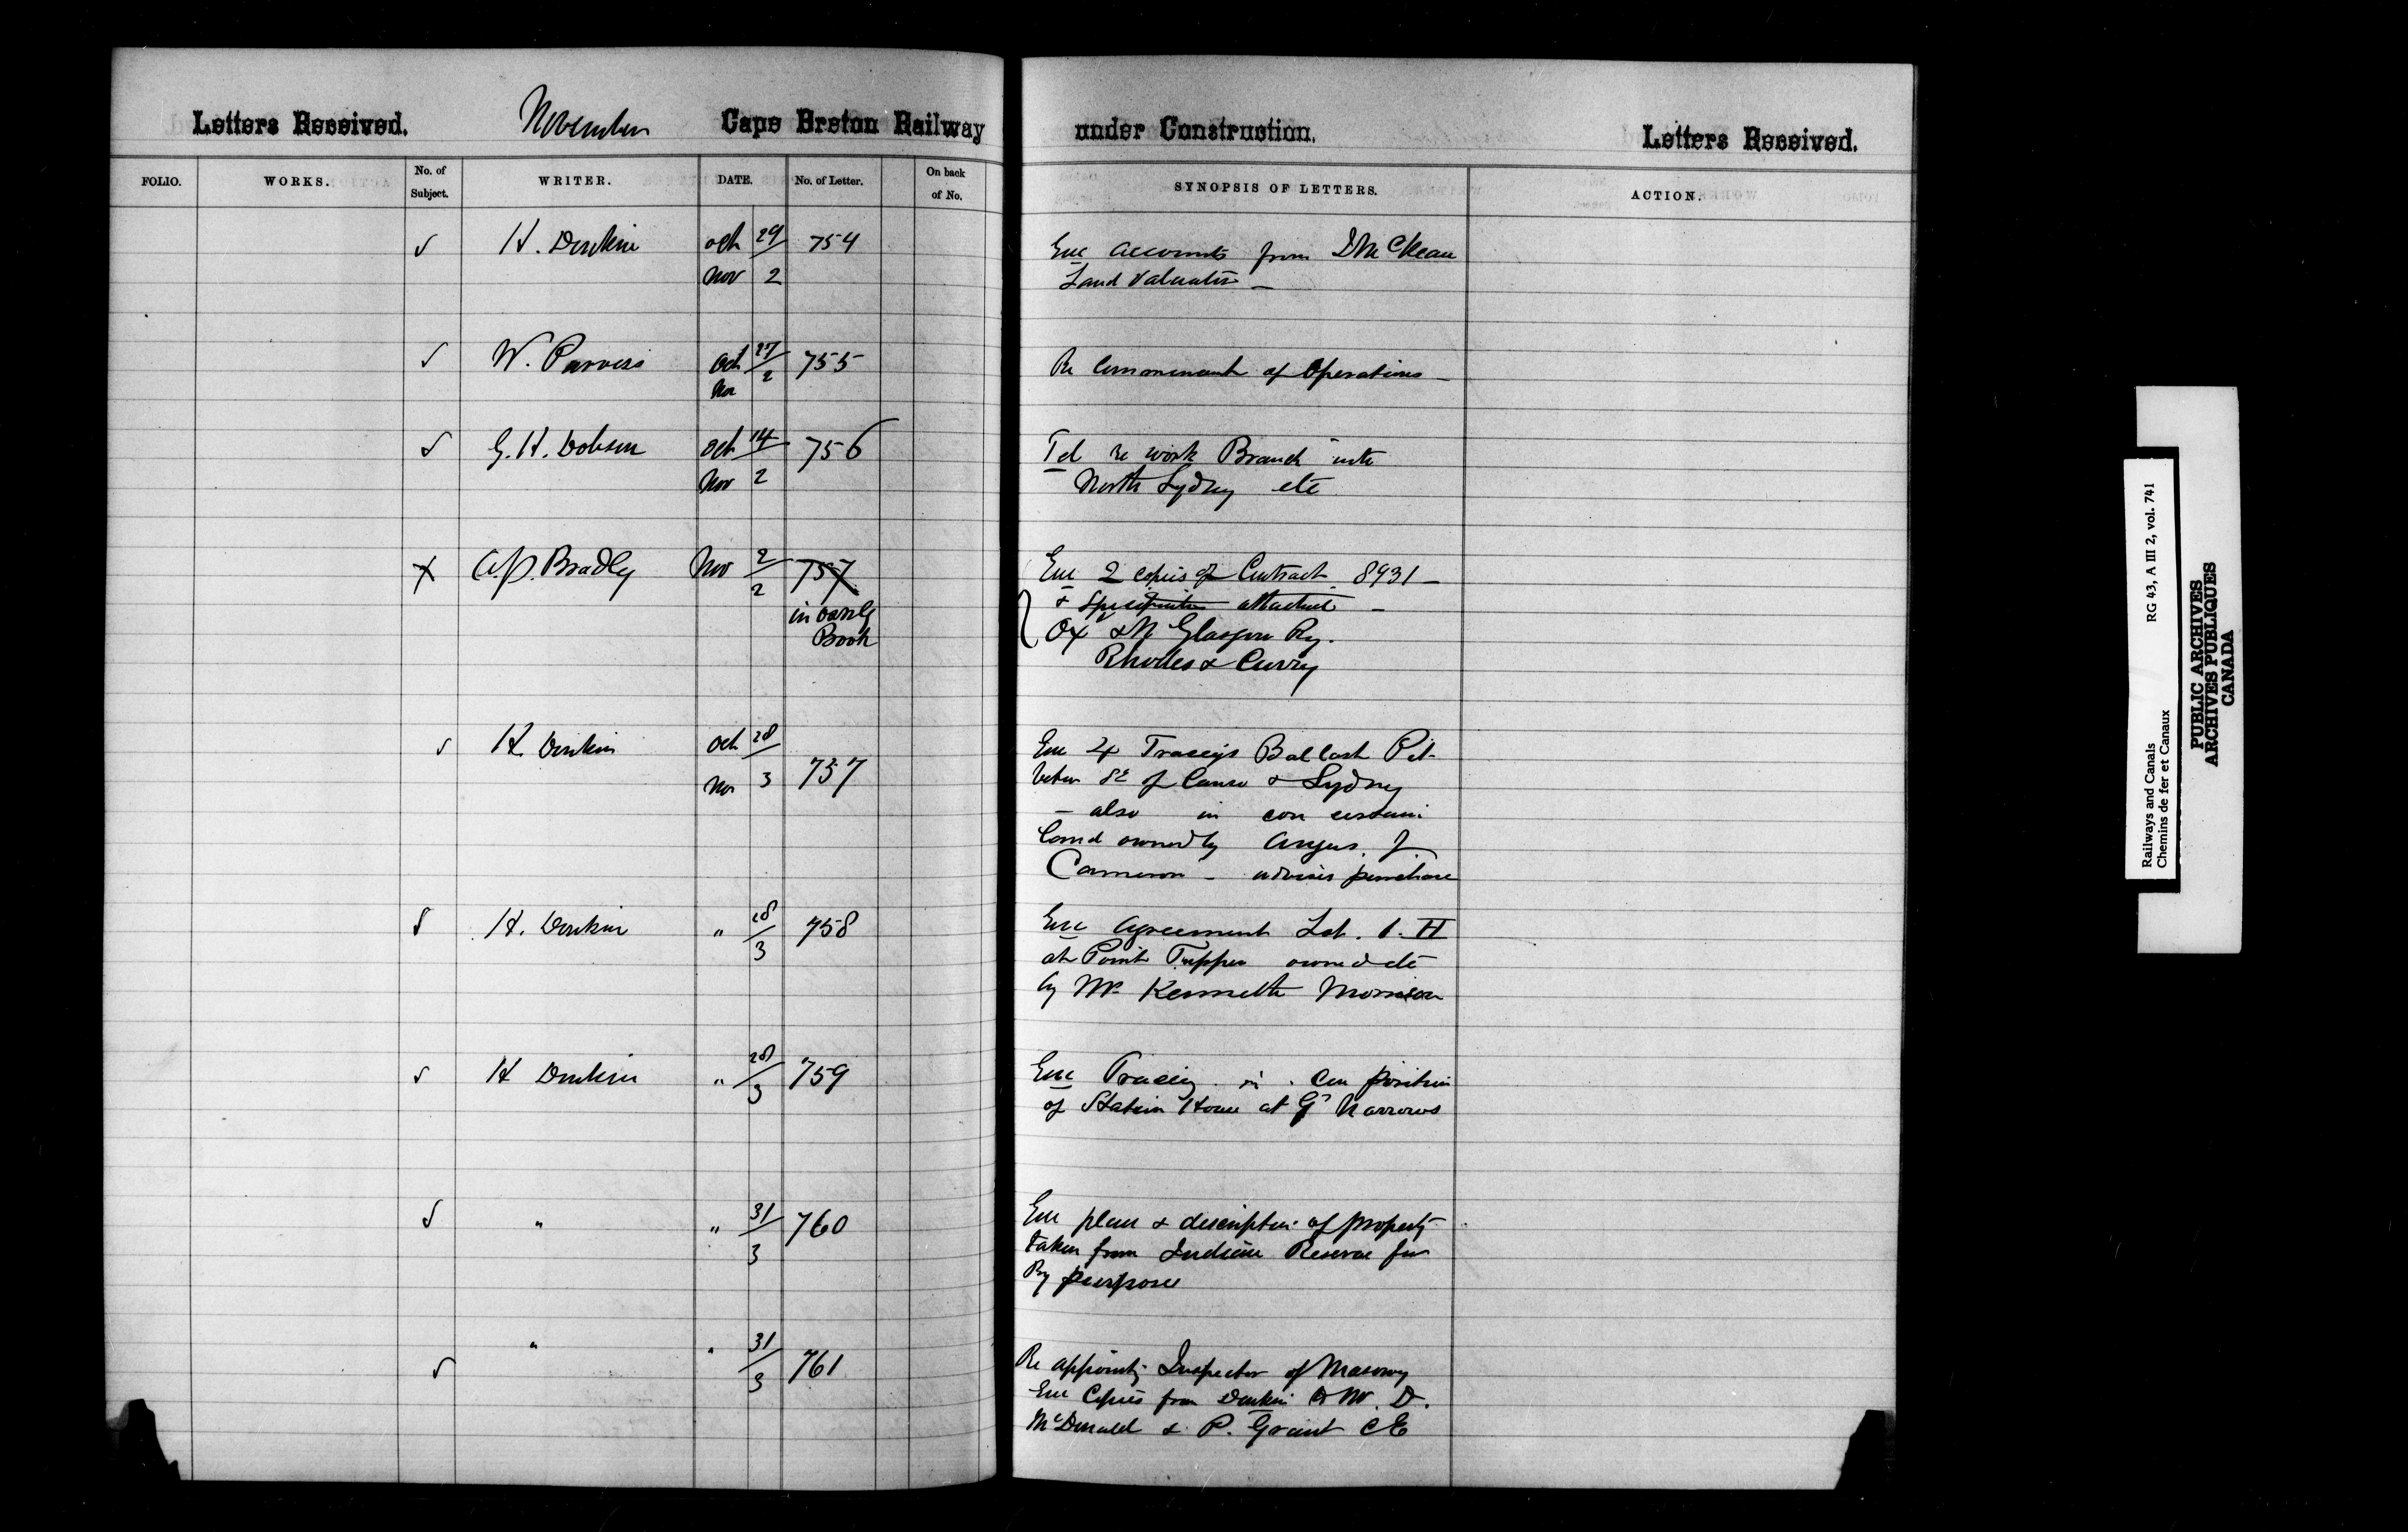 Letters Received. November Cape Breton Railway under Construction. Letters Received.
FOLIO. WORKS. No. of Subject. WRITER. DATE. No. of Letter. On back of No. SYNOPSIS OF LETTERS. ACTION.
√ H. Donkin Oct 29 754 Enc accounts from
Nov 2 Land Valuator —
√ W. Oct 27 755 Re of Operations —
Nov 2
√ G. H. Dobson Oct 14 756 Tel re work Branch into
Nov 2 North Sydney etc
X A.P. Bradley Nov 2 757 Enc 2 copies of Contract 8931 —
2 & Specification attached —
in Book Ox & N Glasgow Ry.
Rhodes & Curry
√ H Donkin Oct 28 Enc 4 Tracings Ballast Pit
Nov 3 757 betwn St of Canso & Sydney
— also in con certain
land owned by Angus J.
Cameron — advises purchase
√ H. Donkin " 28 758 Enc agreement Lot 1. H
3 at Point Tupper owned etc
by Mr Kenneth Morrison
√ H Donkin " 28 759 Enc Tracing in con position
3 of Station House at Gd Narrows
√ " " 31 760 Enc plan & description of property
3 taken from Indian Reserve for
Ry purposes
√ " " 31 761 Re appointg Inspector of Masonry
3 Enc Copies from Donkin D.
McDonald & P. Grant CE
Railways and Canals RG 43, A III 2, vol. 741
Chemins de fer et Canaux
PUBLIC ARCHIVES
ARCHIVES PUBLIQUES
CANADA